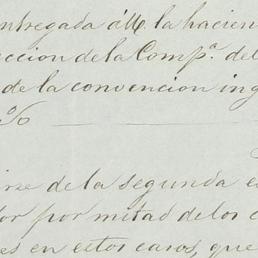 entregada á M. la hacien
ccion de la Comp.ª del
de la convencion ing
%
irse de la segunda e
dor por mitad de los c
es en estos casos, que